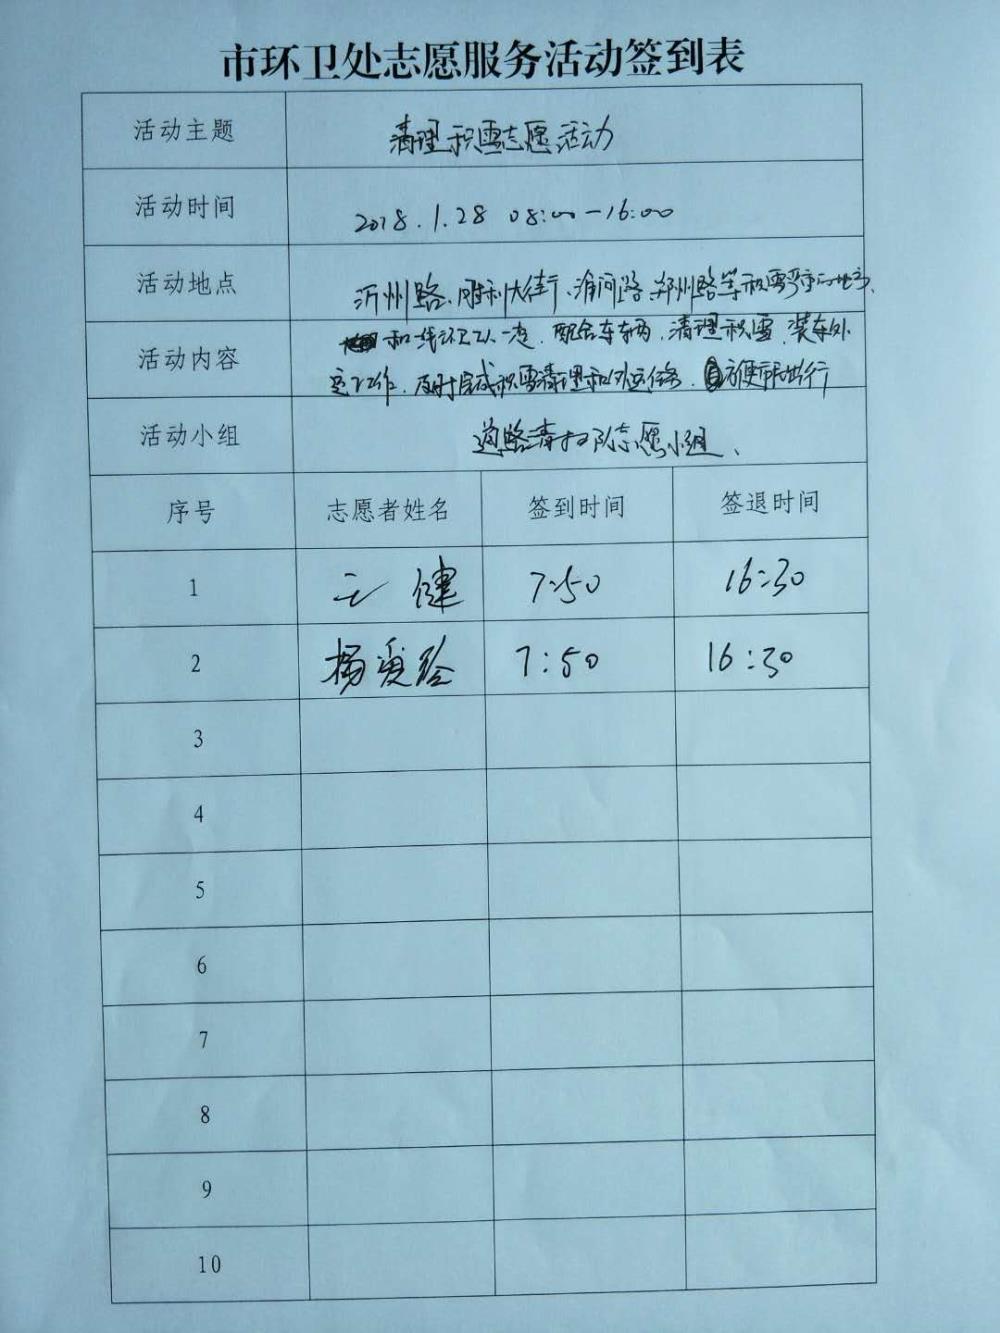 市环卫处志愿服务活动签到表
活动主题 清理积雪志愿活动
活动时间 2018.1.28 08:00-16:00
活动地点 沂州路、胜利大街、淮河路、郑州路等积雪严重的地方、
活动内容 和一线环卫工人一起、配合车辆、清理积雪、装车外
运工作、及时完成积雪清理和外运任务、方便市民出行
活动小组 道路清扫队志愿小组、
序号 志愿者姓名 签到时间 签退时间
1 王健 7:50 16:30
2 杨爱玲 7:50 16:30
3
4
5
6
7
8
9
10